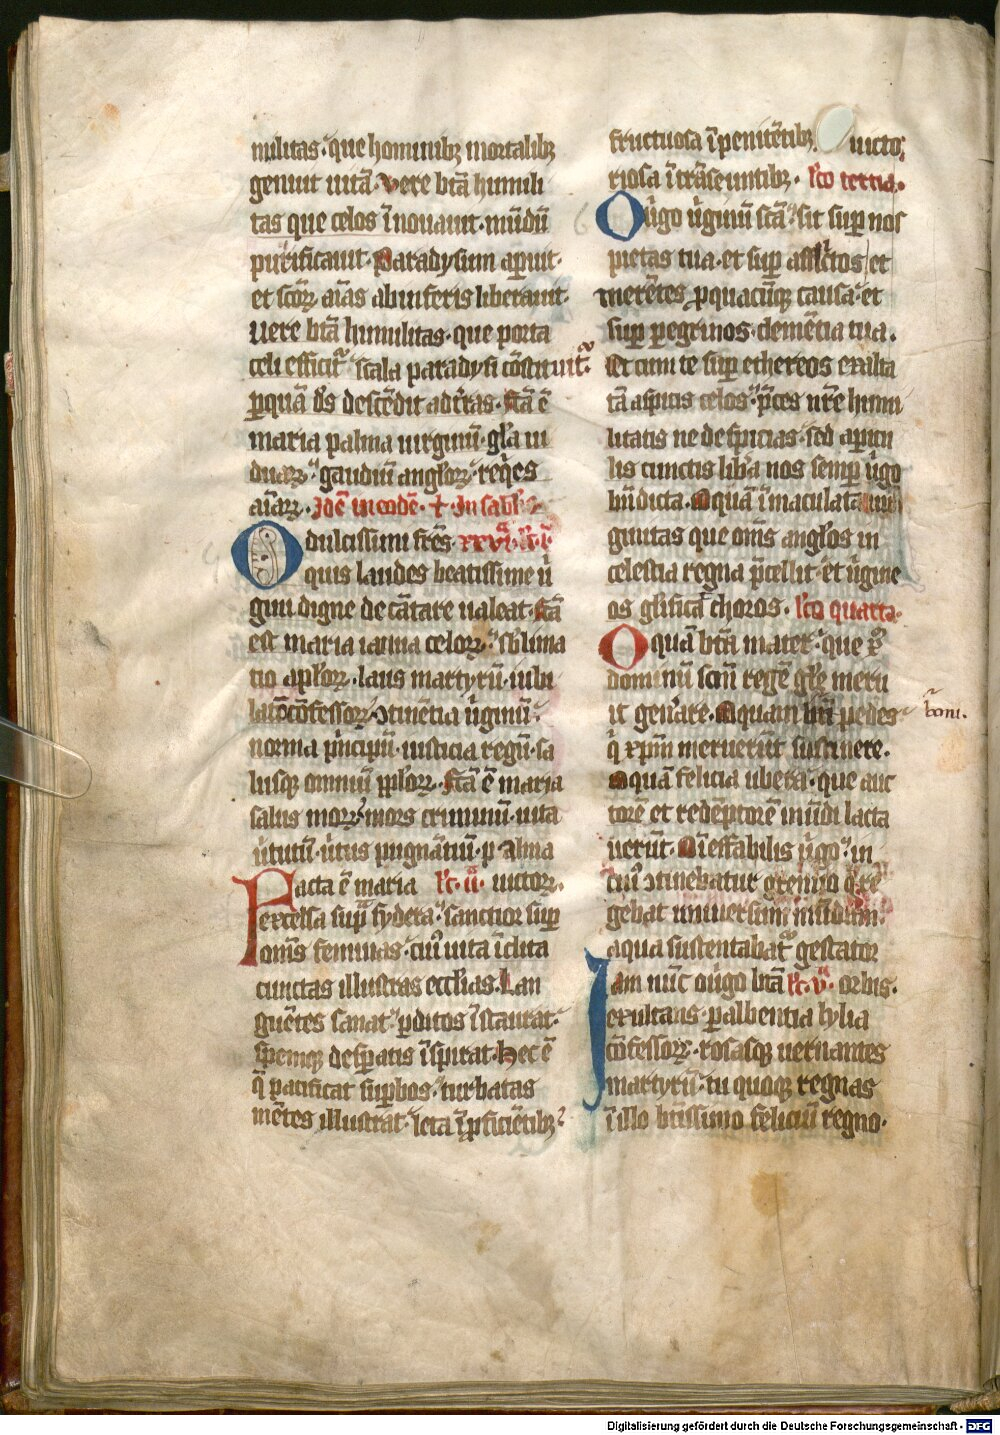 militas· que hominibꝫ mortalibꝫ
genuit uitā· Vere btā humili
tas que celos īnouauit· mūdū
purificauit· Paradysum aperuit·
et scōꝝ aīas ab inferis liberauit·
uere btā humilitas· que porta
celi efficit᷑ scala paradysi cōstituit᷑·
ꝑquā ds̄ descēdit ad t̄ras· Fc̄ā ē
maria palma uirginū· gl̄a ui
duaꝝ· gaudiū angl̄oꝝ· req̄es
aīaꝝ· Idē in eodē· ⁊
O dulcissimi fr̄es xxvi
quis laudes beatissime ū
gini digne decātare ualeat· Fc̄ā
est maria ianua celoꝝ· sb̓lima
tio apl̄oꝝ· laus martyrū· iubi
latō ↄfessoꝝ· ↄtinētia ūginū·
norma p̄ncipū· iusticia regū· sa
lusqꝫ omniū ppl̄oꝝ· Fc̄ā ē maria
salus moꝝ· mors criminū· uita
ùtutū· ùtus pugnātiū· ꝑ alma
Facta ē maria lc̄· ii· uictoꝝ·
excelsa sup̄ sydera· sanctior suꝑ
om̄is feminas· cuiꝰ uita īclita
cunctas illustras eccl̄ias· Lan
guētes sanat· ꝑditos īstaurat·
spemqꝫ desꝑatis īspirat· Hec ē
q̄ pacificat suꝑbos· turbatas
mētes illustrat· leta īꝓficiētibꝫ
fructuosa ī penitētibꝫ· uicto
riosa ī trāseuntibꝫ· lc̄o tertia·
O ūgo ūginū sc̄ā· sit suꝑ nos
pietas tua· et suꝑ afflictos et
merētes ꝓquacūqꝫ causa· et
suꝑ ꝑegrinos· clemētia tua·
Et cum te suꝑ ethereos exalta
tā aspicis celos· p̄ces nr̄e humi
litatis ne despicias· sed a ꝑicu
lis cunctis libꝰa nos semꝑ ūgo
bn̄dicta· O quā īmaculata uir
ginitas que om̄s angl̄os in
celestia regna p̄cellit· et ūgine
os gl̄ificat choros· lc̄o quarta·
O quā btā̄ mater· que xp̄
dominū scm̄ regē gl̄e meru
it gen̓are· O quam bn̄i pedes boni·
q̄ xp̄m meruerūt sustinere·
O quā felicia ubera· que auc
torē et redēptorē mūdi lacta
uerūt· O īeffabilis ūgo· in
cuiꝰ ↄtinebatur gremio q̄ re
gebat uniuersum mūdum·
a qua sustentabat᷑ gestator
Iam nūc o ūgo btā lc̄· v· orbis·
exultans· ꝑ albentia lylia
cōfessoꝝ· rosasqꝫ uernantes
martyrū· tu quoqꝫ regnas
ī illo btīssimo feliciū regno·
Digitalisierung gefördert durch die Deutsche Forschungsgemeinschaft - DFG